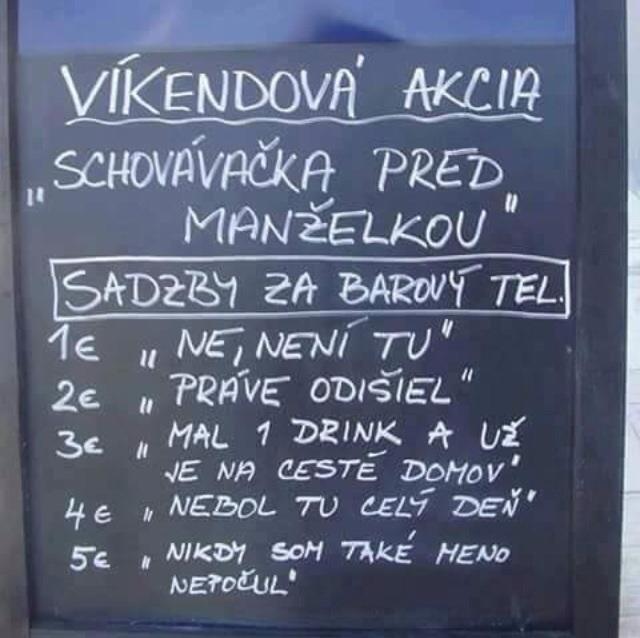 VÍKENDOVÁ AKCIA
„SCHOVÁVAČKA PRED
MANŽELKOU"
SADZBY ZA BAROVÝ TEL.
1€ „NE, NENÍ TU"
2€ „PRÁVE ODIŠIEL"
3€ „MAL 1 DRINK A UŽ
JE NA CESTĚ DOMOV"
4€ „NEBOL TU CELÝ DEŇ"
5€ „NIKDY SOM TAKÉ MENO
NEPOČUL"